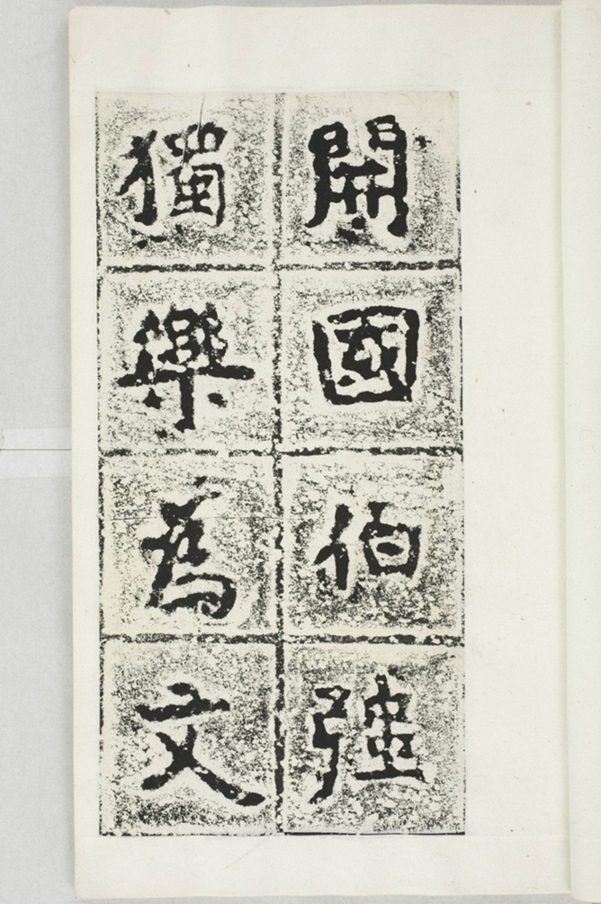 開國伯強
獨樂為文